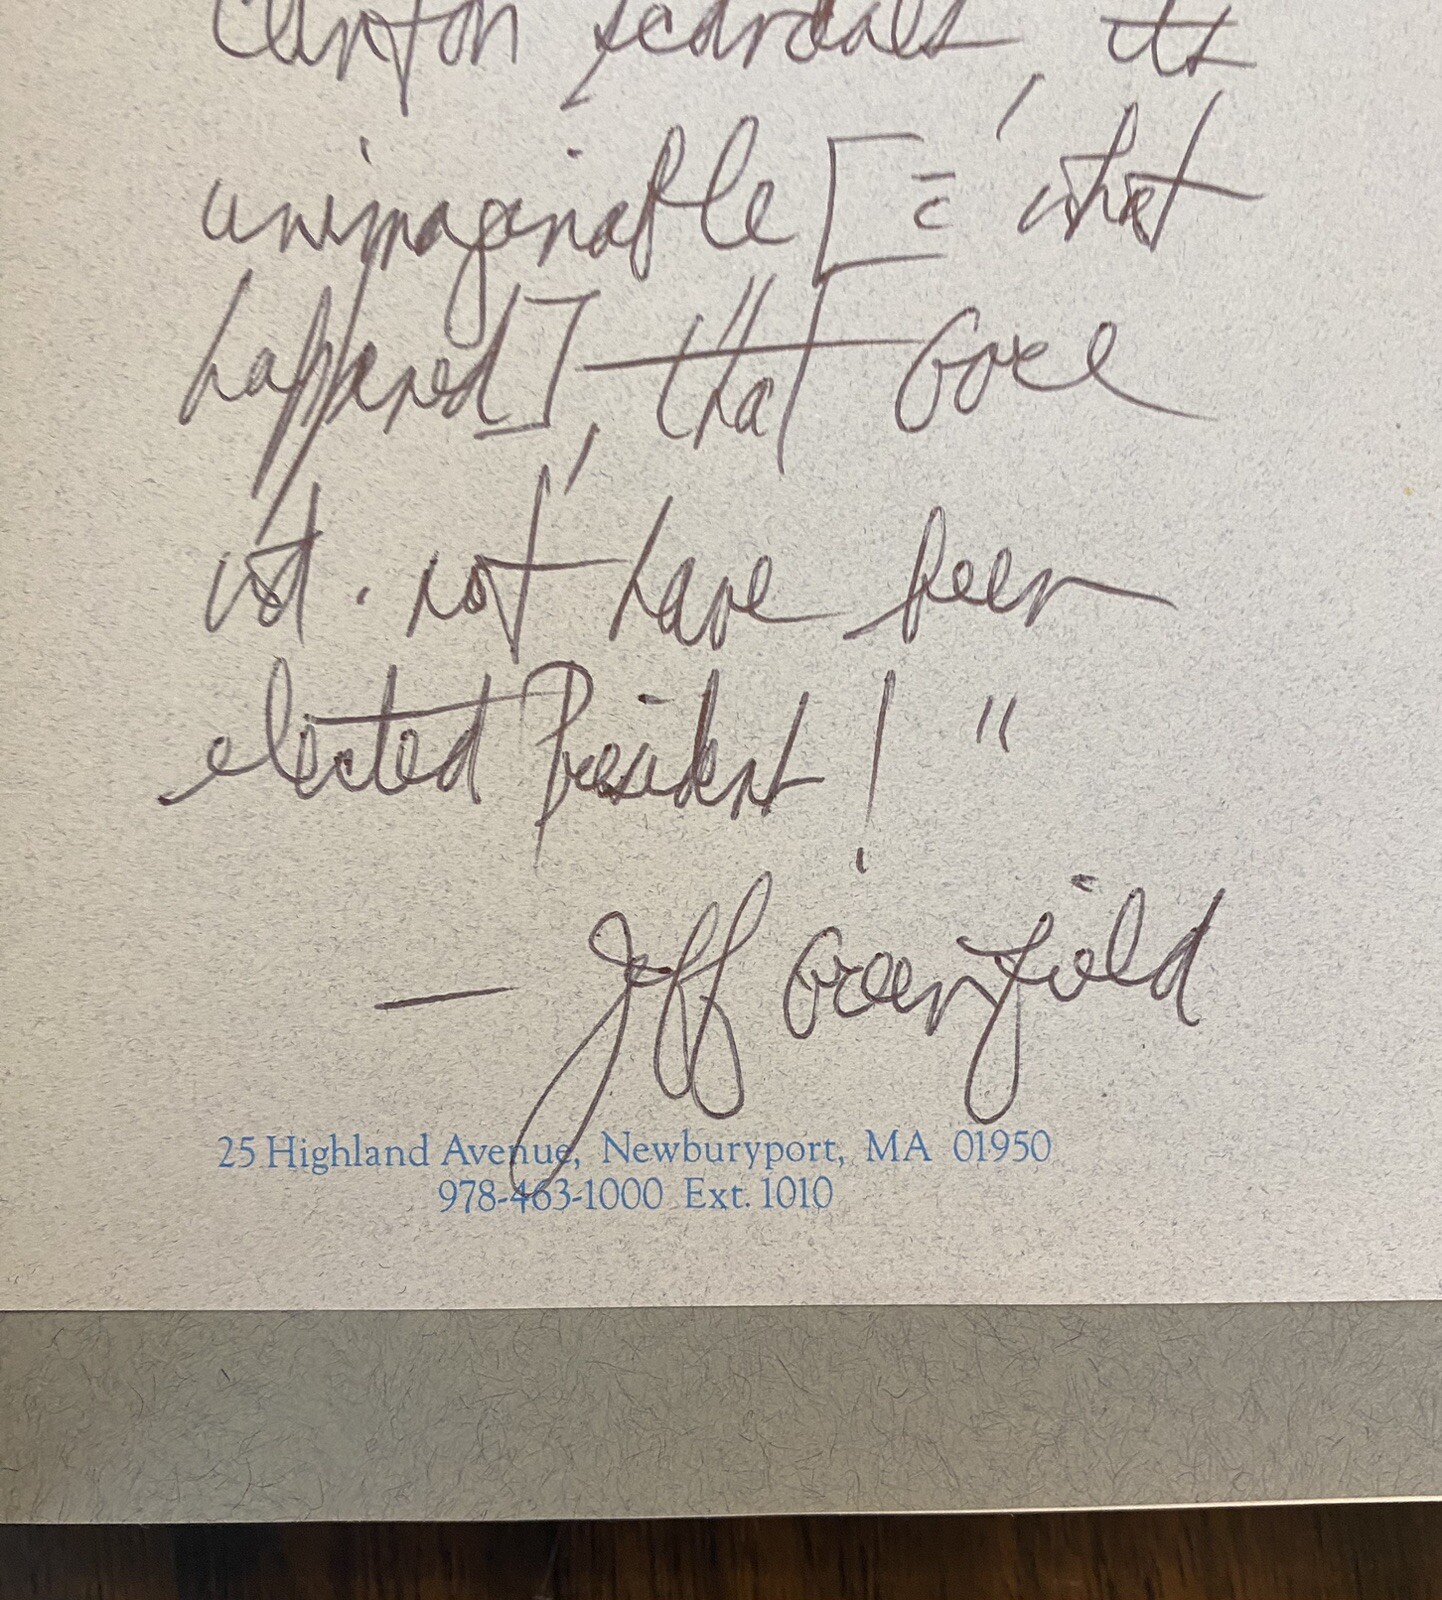 Clinton scandals, its
unimaginable [c̄ what
happened], that Gore
wd. not have been
elected President!"
— Jeff Greenfield
25 Highland Avenue, Newburyport, MA 01950
978-463-1000 Ext. 1010